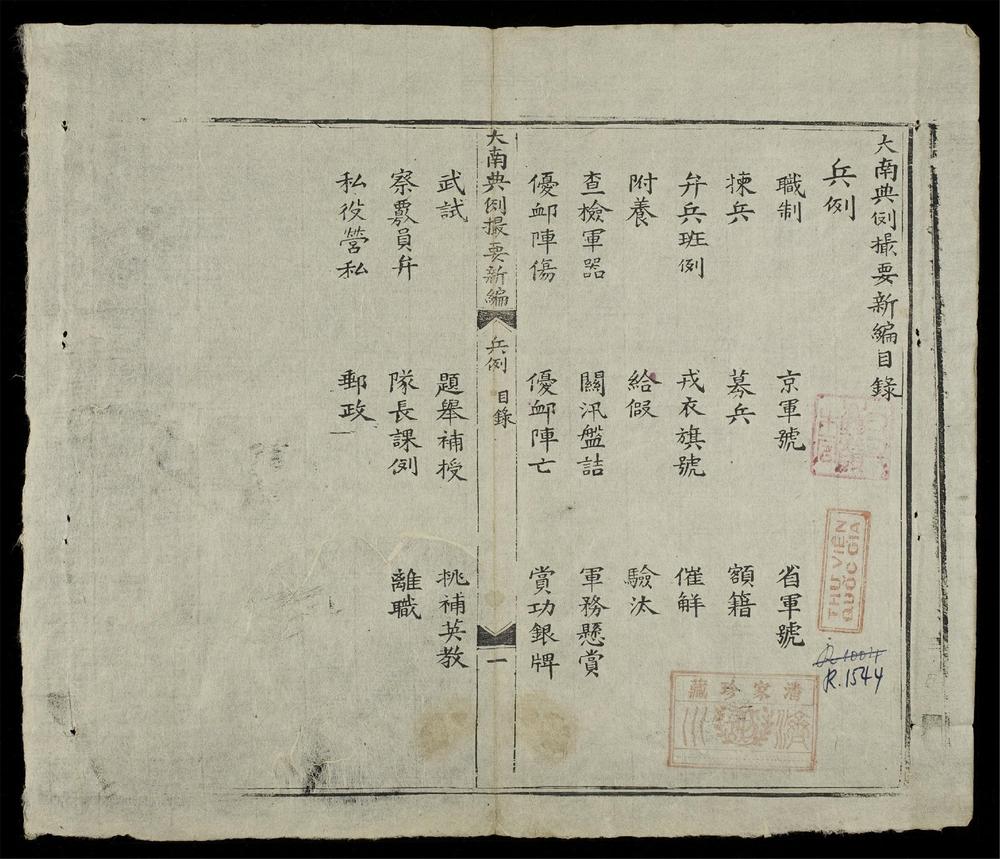 大南典例撮要新編目錄
兵例
職制 京軍號 省軍號
揀兵 募兵 額籍
弁兵班例 戎衣旗號 催觧
附養 給假 驗汰
查檢軍器 關汛盤詰 軍務懸賞
優卹陣傷 優卹陣亡 賞功銀牌
大南典例撮要新編 兵例 目錄 一
武試 題舉補授 挑補英教
察覈員弁 隊長課例 離職
私役營私 郵政
THƯ VIỆN
QUỐC GIA
R.1544
清家珍藏